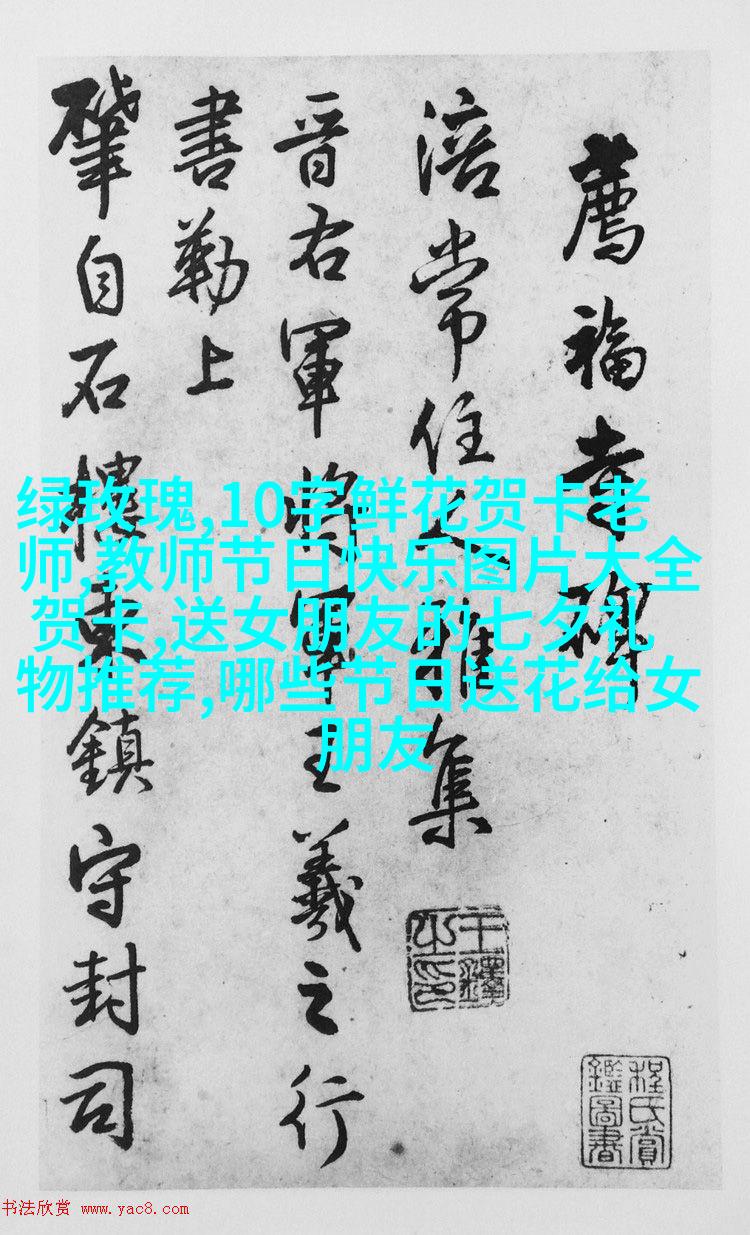 薦福寺碑
涪常住雅集
晉右軍將軍王羲之行
書勒上
肇自石樓東鎮守封司
王鐸之印
程氏賞鑑圖書
绿玫瑰,10字鲜花贺卡老
师,教师节日快乐图片大全
贺卡,送女朋友的七夕礼
物推荐,哪些节日送花给女
朋友
书法欣赏 www.yac8.com